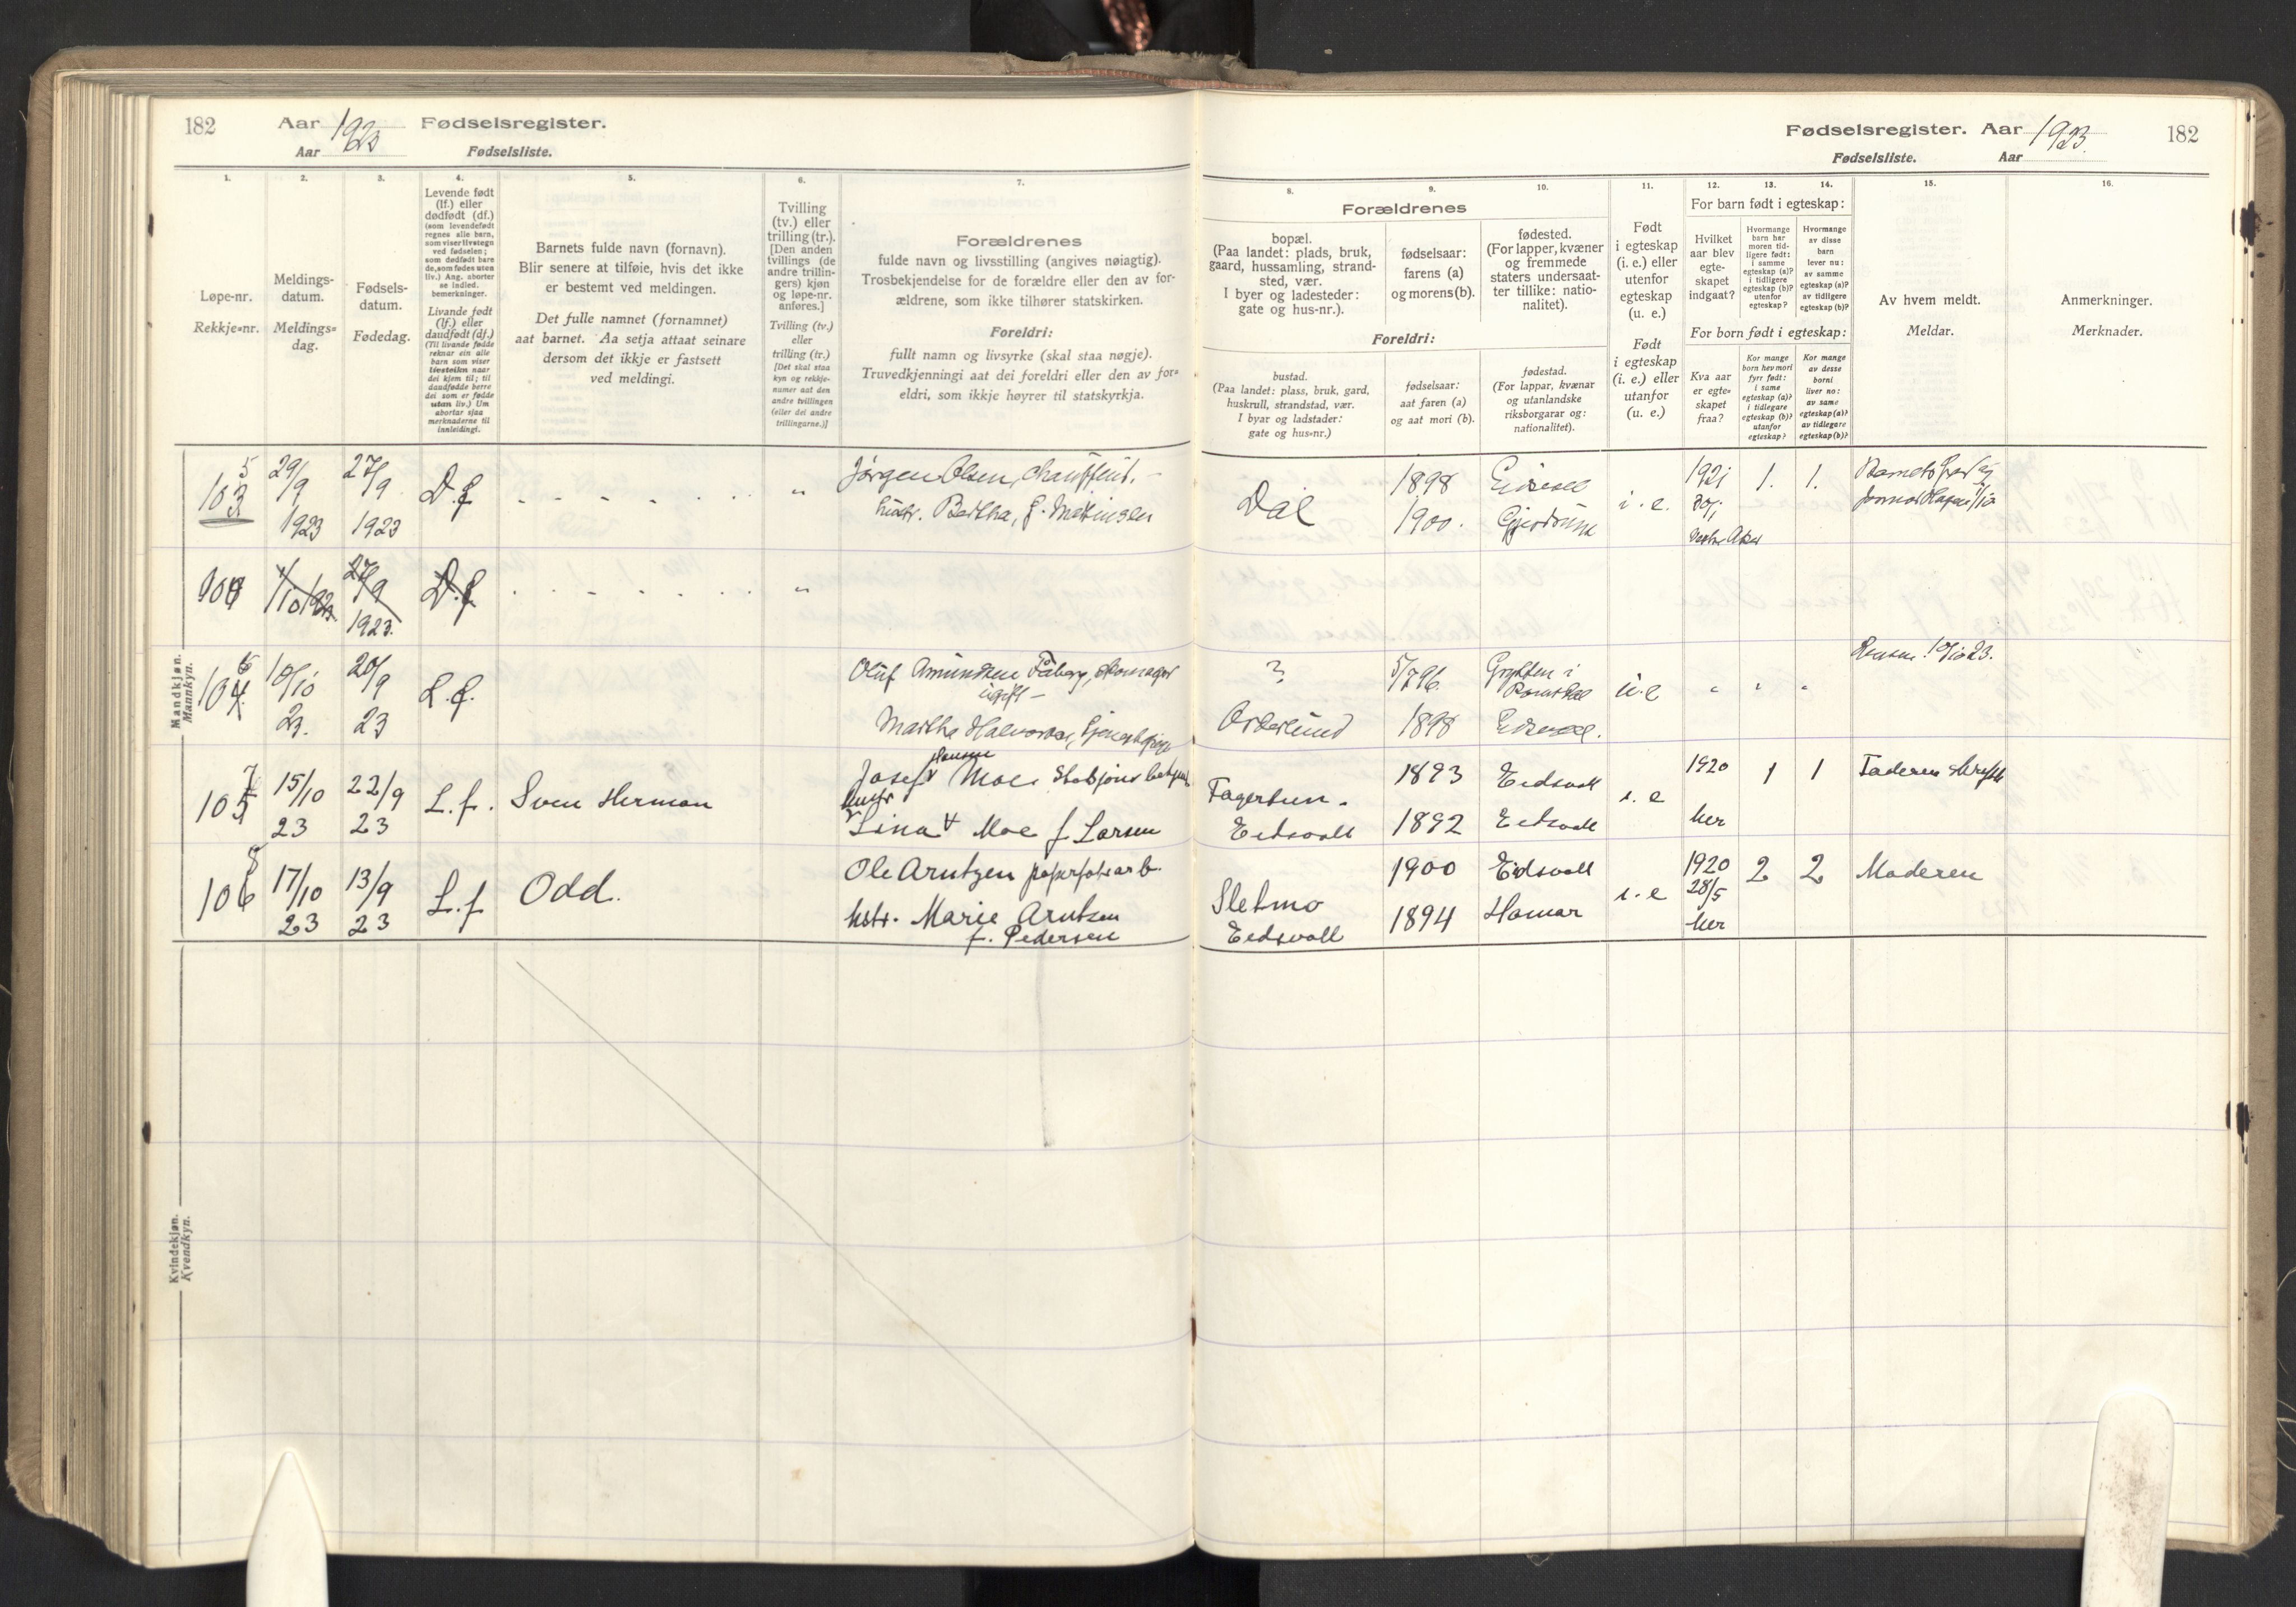 182 Aar 1923 Fødselsregister.
Aar Fødselsliste.
Fødselsregister. Aar 1923. 182
Fødselsliste. Aar
1.
Løpe-nr.
Rekkje=nr.
2.
Meldings-
datum.
Meldings=
dag.
3.
Fødsels-
datum.
Fødedag.
4.
Levende født
(lf.) eller
dødfødt (df.)
(som levendefødt
regnes alle barn,
som viser livstegn
ved fødselen;
som dødfødt bare
de, som fødes uten
liv.) Ang. aborter
se indled.
bemerkninger.
Livande født
(lf.) eller
daudfødt (df.)
(Til livande fødde
reknar ein alle
barn som viser
livsteikn naar
dei kjem til; til
daudfødde berre
dei som er fødde
utan liv.) Um
abortar sjaa
merknaderne til
innleidingi.
5.
Barnets fulde navn (fornavn).
Blir senere at tilføie, hvis det ikke
er bestemt ved meldingen.
Det fulle namnet (fornamnet)
aat barnet. Aa setja attaat seinare
dersom det ikkje er fastsett
ved meldingi.
6.
Tvilling
(tv.) eller
trilling (tr.).
[Den anden
tvillings (de
andre trillin-
gers) kjøn
og løpe-nr.
anføres.]
Tvilling (tv.)
eller
trilling (tr.)
[Det skal staa
kyn og rekkje-
numer aat den
andre tvillingen
(eller dei andre
trillingarne.)]
7.
Forældrenes
fulde navn og livsstilling (angives nøiagtig).
Trosbekjendelse for de forældre eller den av for-
ældrene, som ikke tilhører statskirken.
Foreldri:
fullt namn og livsyrke (skal staa nøgje).
Truvedkjenningi aat dei foreldri eller den av for=
eldri, som ikkje høyrer til statskyrkja.
8.
9.
10.
Forældrenes
bopæl.
(Paa landet: plads, bruk,
gaard, hussamling, strand-
sted, vær.
I byer og ladesteder:
gate og hus-nr.).
fødselsaar:
farens (a)
og morens (b).
fødested.
(For lapper, kvæner
og fremmede
staters undersaat-
ter tillike: natio-
nalitet).
Foreldri:
bustad.
(Paa landet: plass, bruk, gard,
huskrull, strandstad, vær.
I byar og ladstader:
gate og hus=nr.)
fødselsaar:
aat faren (a)
og aat mori (b).
fødestad.
(For lappar, kvænar
og utanlandske
riksborgarar og:
nationalitet).
11.
Født
i egteskap
(i. e.) eller
utenfor
egteskap
(u. e.)
Født
i egteskap
(i. e.) eller
utanfor
(u. e.)
12.
13.
14.
For barn født i egteskap:
Hvilket
aar blev
egte-
skapet
indgaat?
Hvormange
barn har
moren tid-
ligere født:
i samme
egteskap (a)?
i tidligere
egteskap (b)?
utenfor
egteskap?
Hvormange
av disse
barn
lever nu:
av samme
egteskap (a)?
av tidligere
egteskap (b)?
For born født i egteskap:
Kva aar
er egte-
skapet
fraa?
Kor mange
born hev mori
fyrr født:
i same
egteskap (a)?
i tidlegare
egteskap (b)?
utanfor
egteskap?
Kor mange
av desse
borni
liver no:
av same
egteskap (a)?
av tidlegare
egteskap (b)?
15.
Av hvem meldt.
Meldar.
16.
Anmerkninger.
Merknader.
Mandkjøn.
Mannkyn.
103 5
29/9
1923
27/9
1923
D.f.
Jørgen Olsen, chauffeur.
hustr. Bertha, f. Mathisen
Dal
1898
1900.
Eidsvoll
Gjerdrum
i. e.
1921
Vestre Aker
1. 1.
27/9
1923.
D.f.
104 6
10/10
23.
20/9
23
L.f.
Oluf Amundsen Faaberg,
ugift
Martha Halvorsen,
?
Østerlund
5/7 96.
1898
Grytten i
Romsdal
Eidsvoll.
u.e
10/10 23.
105 7
15/10
23
22/9
23
L.f.
Sven Herman
Hansen
Josef Moe Stasjonsbetjent
hustr
Lina Moe f Larsen
Fagertun.
Eidsvoll
1893
1892
Eidsvoll
Eidsvoll
i. e
1920
her
1 1
Faderen skriftl
106 8
17/10
23
13/9
23
L.f
Odd.
Ole Arntzen papirfabr arb.
hstr. Marie Arntzen
f. Pedersen
Sletmo
Eidsvoll
1900
1894
Eidsvoll
Hamar
i. e
1920
28/5
her
2 2
Moderen
Kvindekjøn.
Kvendkyn.